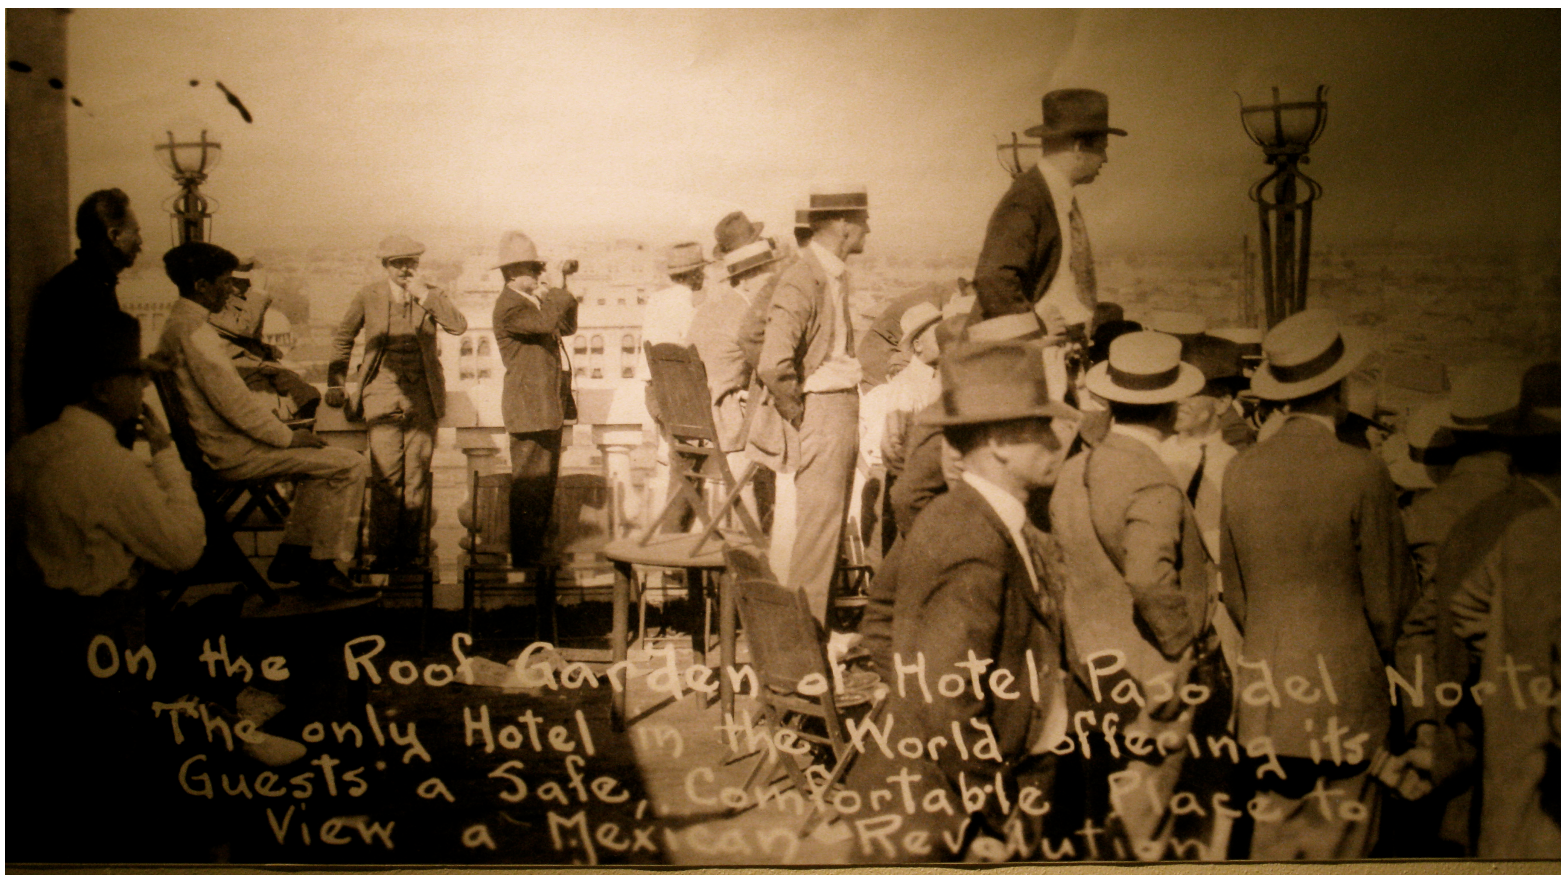 On the Roof Garden of Hotel Paso del Norte
The only Hotel in the World offering its
Guests a Safe, Comfortable Place to
View a Mexican Revolution